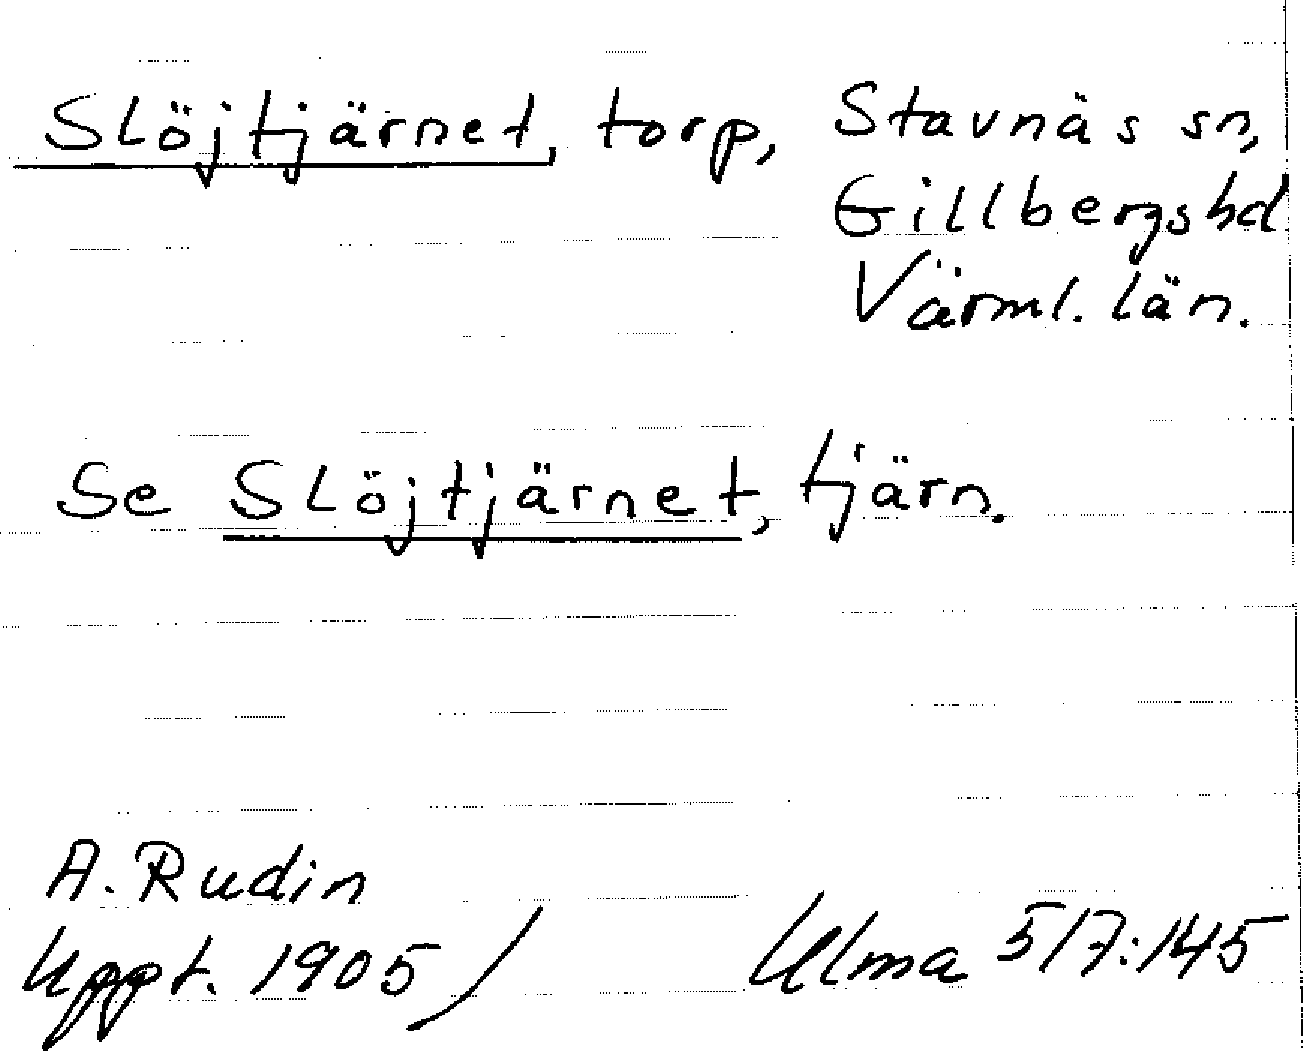 Slöjtjärnet, torp, Stavnäs sn,
Gillbergs hd
Värml. län.
Se Slöjtjärnet, tjärn.
A. Rudin
Uppt. 1905 / Ulma 517:145